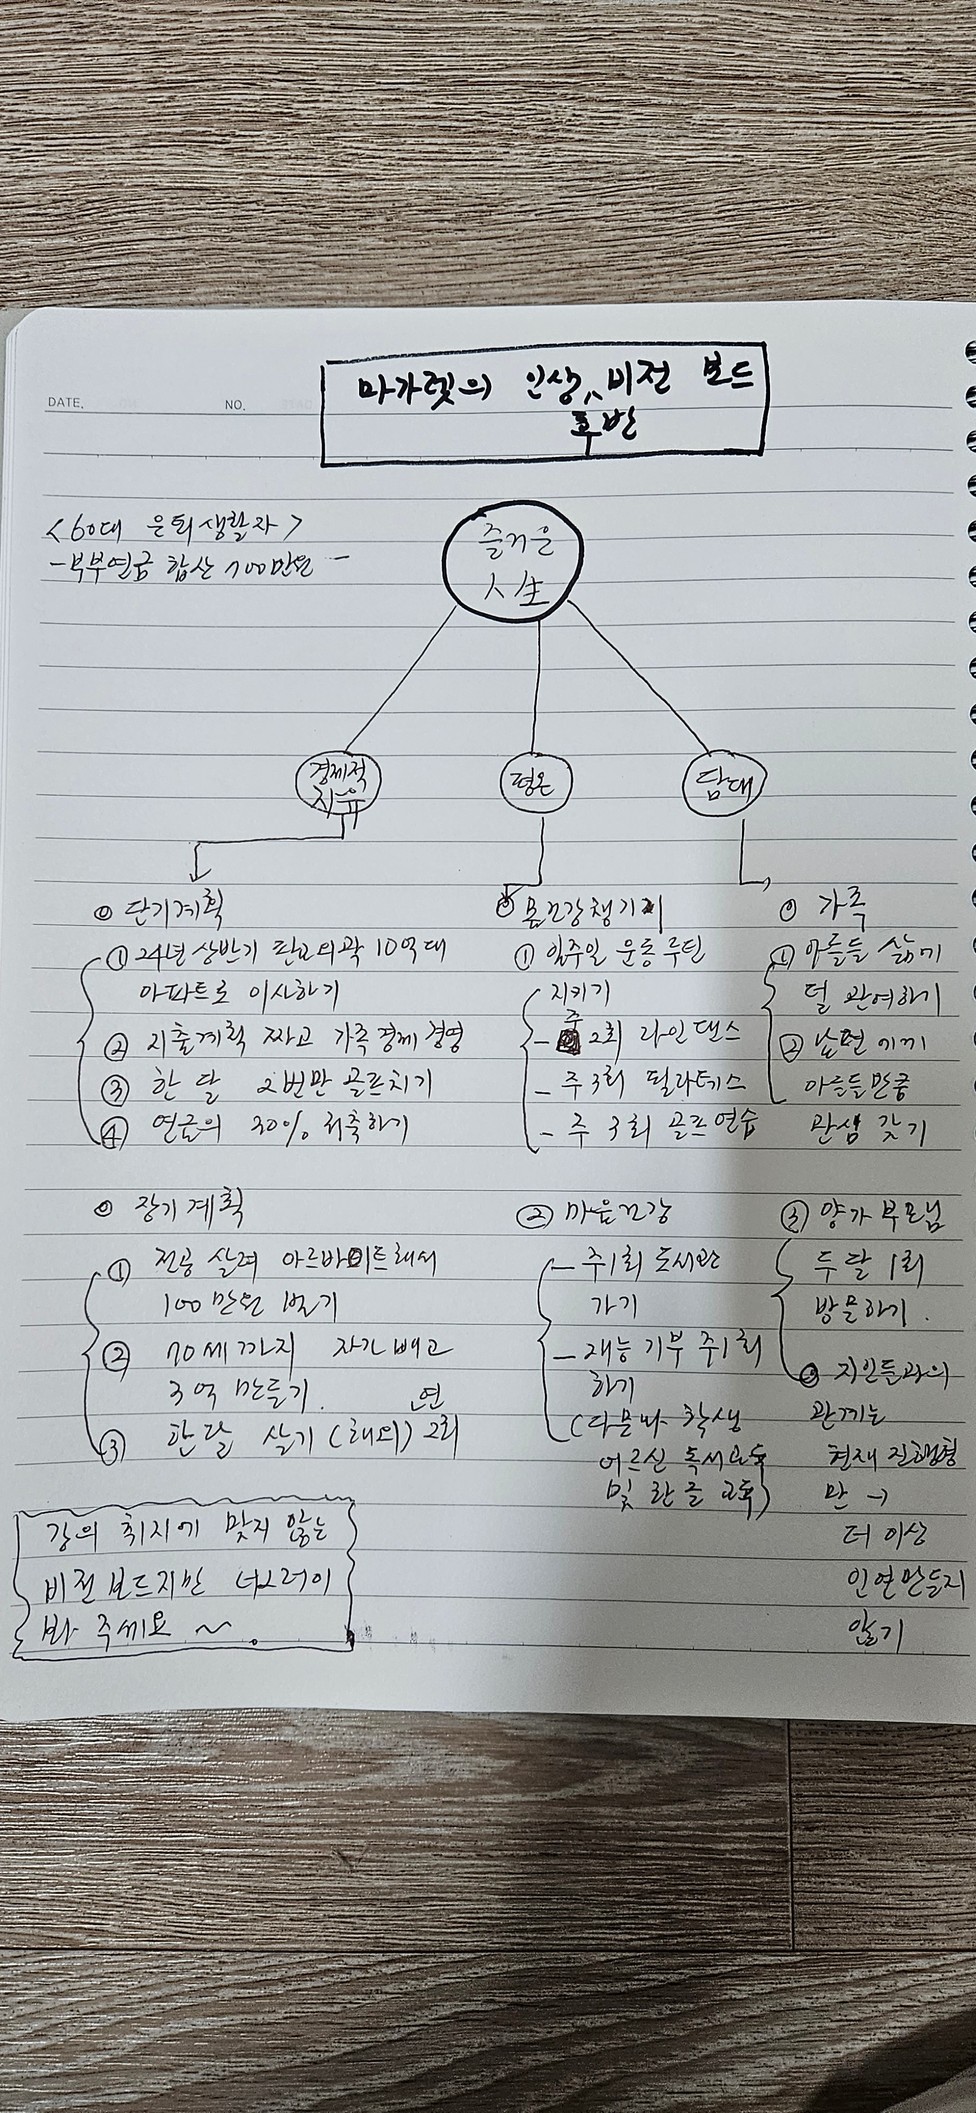 마가렛의 인생 후반 비전 보드
DATE.
NO.
<60대 은퇴생활자>
- 부부연금 합산 700만원 -
즐거운
人生
경제적
자유
평온
담대
◎ 단기계획
① 24년 상반기 판교외곽 10억대
아파트로 이사하기
② 지출계획 짜고 가족경제 경영
③ 한 달 2번만 골프치기
④ 연금의 30% 저축하기
◎ 장기계획
① 전공 살려 아르바이트해서
100만원 벌기
② 70세까지 자가 빼고
3억 만들기.
③ 한달 살기 (해외) 연 2회
◎ 몸건강챙기기
① 일주일 운동루틴
지키기
- 주 2회 라인댄스
- 주 3회 필라테스
- 주 3회 골프연습
② 마음건강
- 주1회 도서관
가기
- 재능기부 주1회
하기
(다문화 학생
어르신 독서교육
및 한글 교육)
◎ 가족
① 아들들 삶에
덜 관여하기
② 남편에게
아들들만큼
관심 갖기
③ 양가 부모님
두 달 1회
방문하기.
◎ 지인들과의
관계는
현재 진행형
만 →
더 이상
인연만들지
않기
강의 취지에 맞지 않는
비전보드지만 너그러이
봐 주세요 ~.